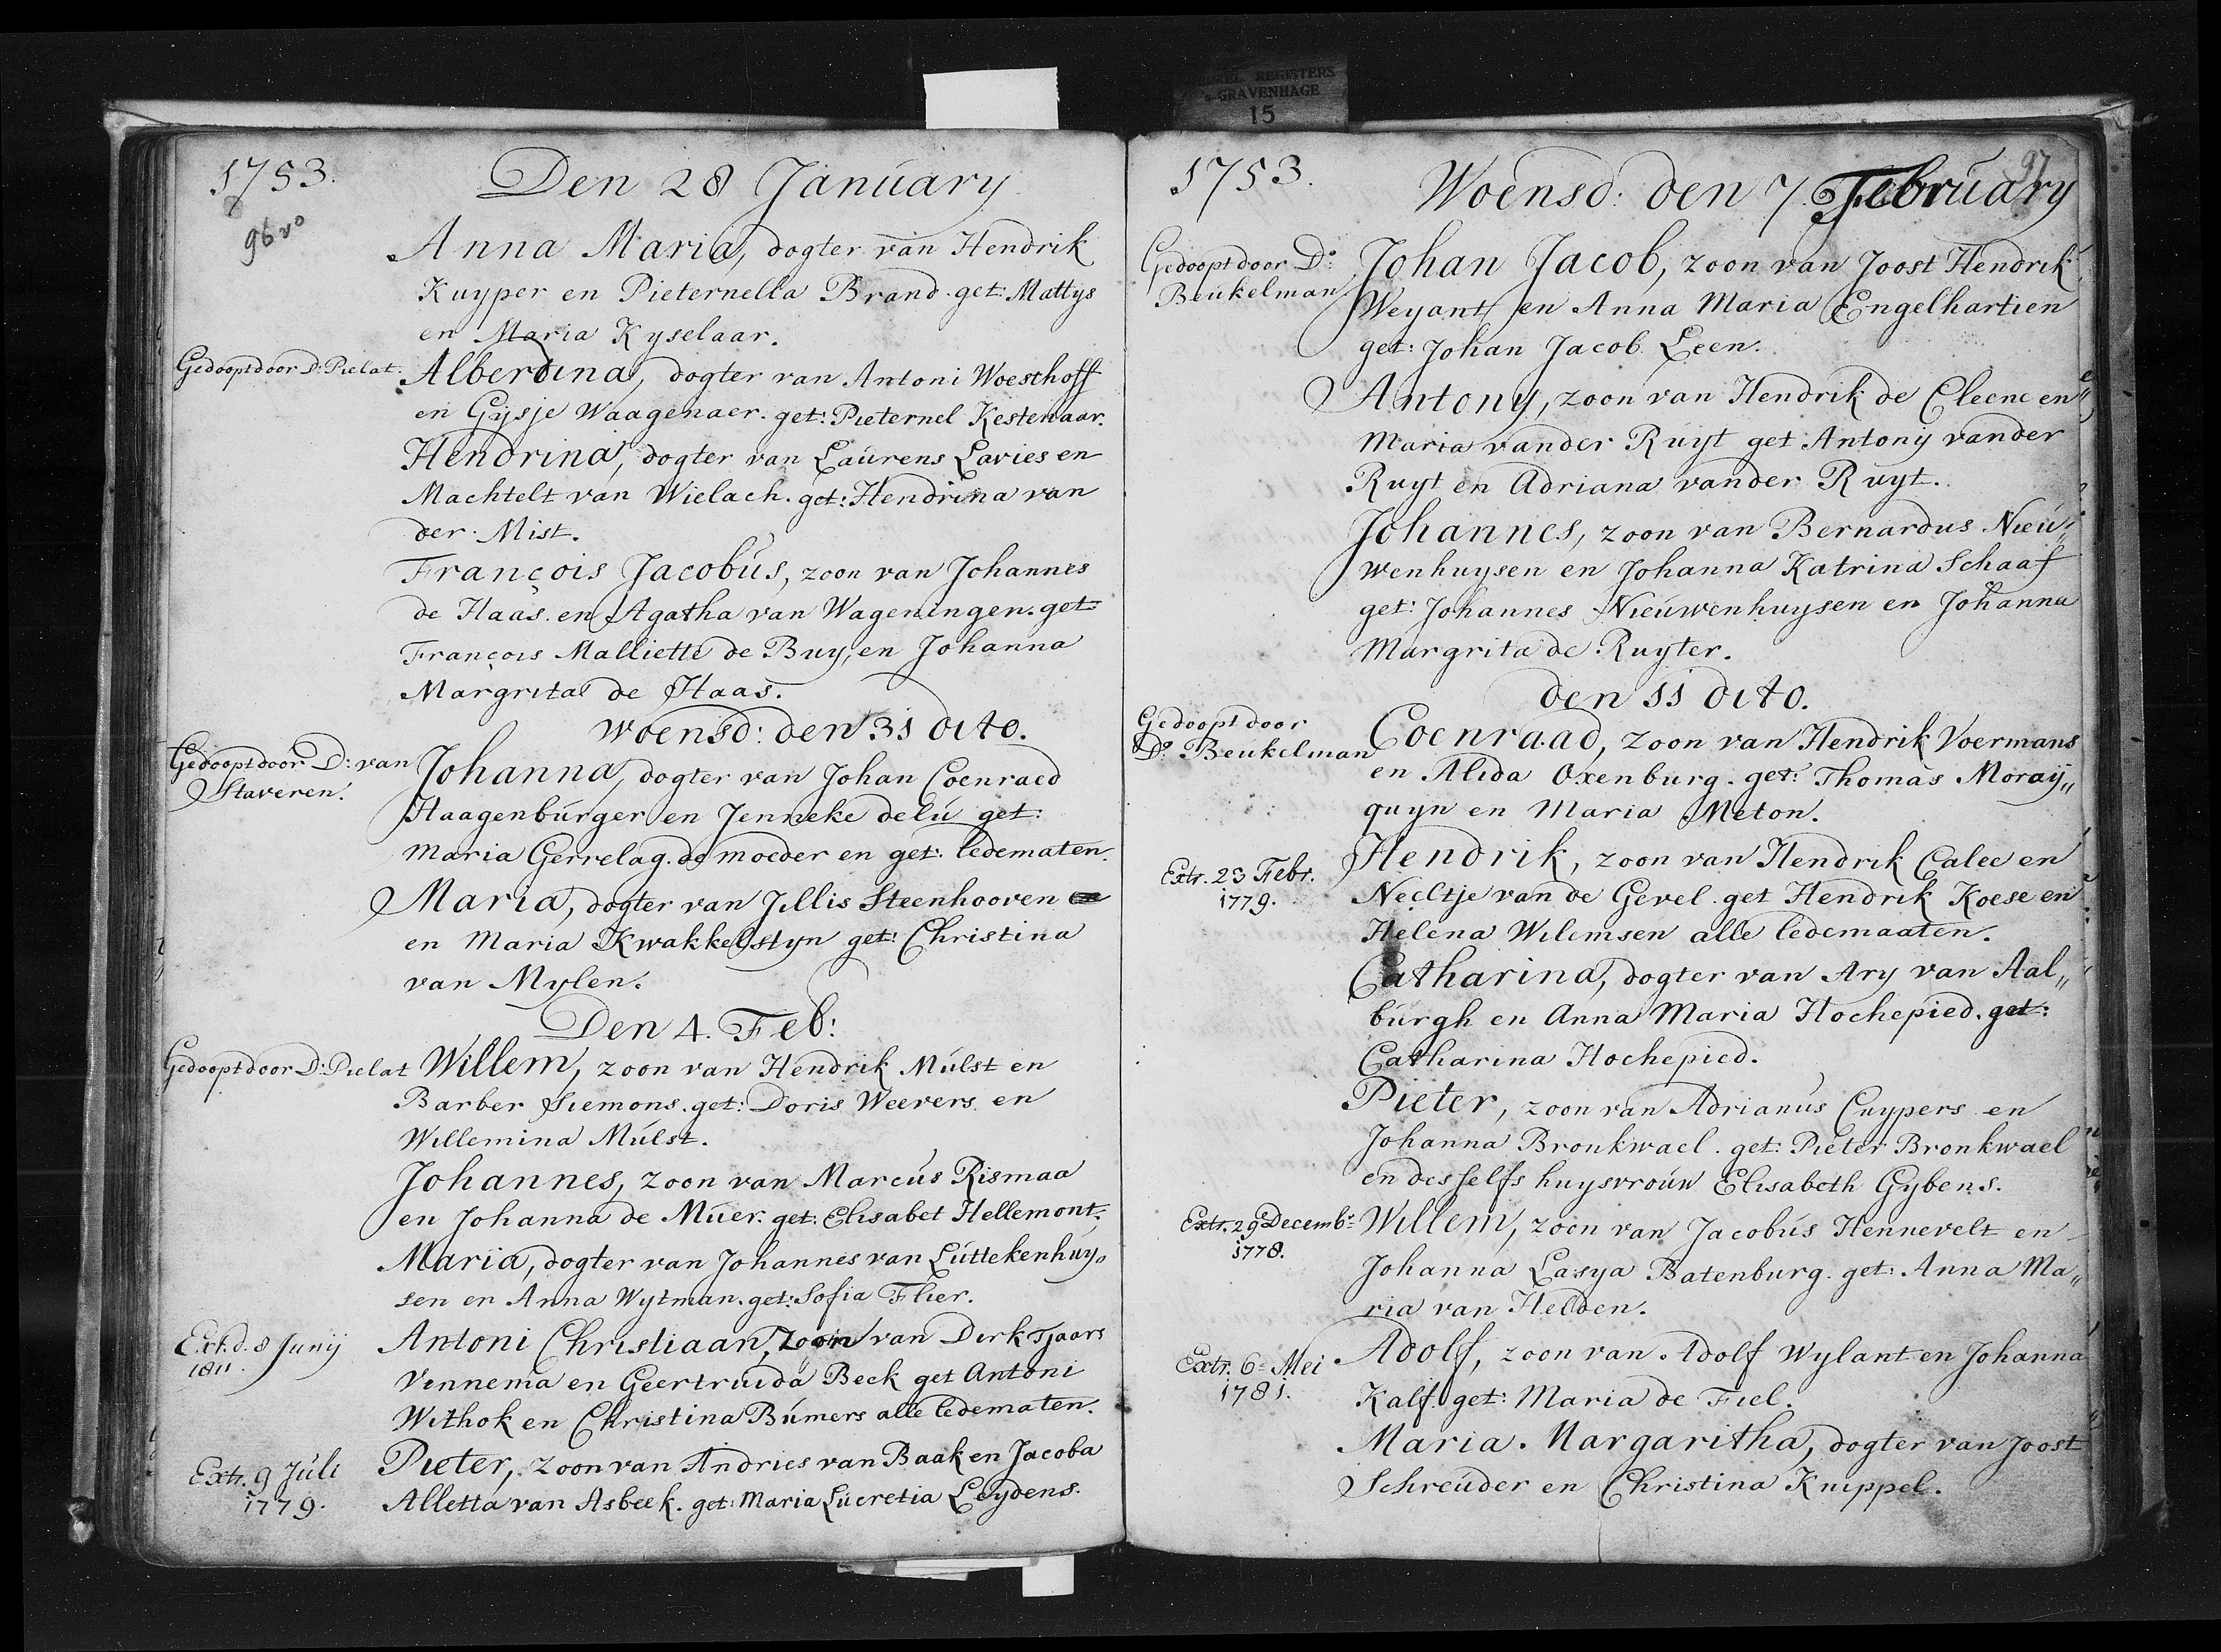 KERKEL. REGISTERS
s-GRAVENHAGE
15
1753.
96 vo
Den 28 January
Anna Maria, dogter van Hendrik
Kuyper en Pieternella Brand. get: Mattys
en Maria Kyselaar.
Gedoopt door D: Pielat.
Alberdina, dogter van Antoni Woesthoff
en Gijsje Waagenaer. get: Pieternel Kestenaar.
Hendrina, dogter van Laurens Lavies en
Machtelt van Wielach. get: Hendrina van
der Mist.
François Jacobus, zoon van Johannes
de Haas. en Agatha van Wageningen. get:
François Malliette de Buy, en Johanna
Margrita de Haas.
Woensd: den 31 dito.
Gedoopt door D: van
Staveren.
Johanna, dogter van Johan Coenraed
Haagenburger en Jenneke delu get:
Maria Gerrelag. de moeder en get: ledematen.
Maria, dogter van Jillis Steenhooven
en Maria Kwakkelstyn get: Christina
van Mylen.
Den 4. Feb:
Gedoopt door D: Pielat
Willem, zoon van Hendrik Mulst en
Barber Siemons. get: Doris Weevers en
Willemina Mulst.
Johannes, zoon van Marcus Rismaa
en Johanna de Muer. get: Elisabet Hellemont.
Maria, dogter van Johannes van Luttekenhuy„
sen en Anna Wytman. get: Sofia Flier.
Ext. d. 8 Junij
1811.
Antoni Christiaan, zoon van Dirk Tjaars
Vennema en Geertruida Beck get Antoni
Withok en Christina Bumers alle ledematen.
Extr. 9 Juli
1779.
Pieter, zoon van Andries van Baak en Jacoba
Alletta van Asbeek. get: Maria Lucretia Leydens.
1753.
97
Woensd: den 7. February
Gedoopt door Do:
Beukelman
Johan Jacob, zoon van Joost Hendrik
Weyant en Anna Maria Engelhartien
get: Johan Jacob Leen.
Antony, zoon van Hendrik de Cleene en
Maria vander Ruyt get Antonij vander
Ruyt en Adriana vander Ruyt.
Johannes, zoon van Bernardus Nieu„
wenhuysen en Johanna Katrina Schaaf
get: Johannes Nieuwenhuysen en Johanna
Margrita de Ruyter.
den 11 dito.
Gedoopt door
Do. Beukelman
Coenraad, zoon van Hendrik Voermans
en Alida Oxenburg. get: Thomas Moraij„
quyn en Maria Meton.
Extr. 23 Febr.
1779.
Hendrik, zoon van Hendrik Calee en
Neeltje van de Gevel. get Hendrik Koese en
Helena Wilemsen alle ledemaaten.
Catharina, dogter van Ary van Aal„
burgh en Anna Maria Hochepied. get:
Catharina Hochepied.
Pieter, zoon van Adrianus Cuypers en
Johanna Bronkwael. get: Pieter Bronkwael
en desselfs huysvrouw Elisabeth Gybens.
Extr. 29e Decembr.
1778.
Willem, zoon van Jacobus Hennevelt en
Johanna Lasya Batenburg. get: Anna Ma„
ria van Helden.
Extr. 6e Mei
1781.
Adolf, zoon van Adolf Wylant en Johanna
Kalf. get: Maria de Fiel.
Maria Margaritha, dogter van Joost
Schreuder en Christina Knippel.